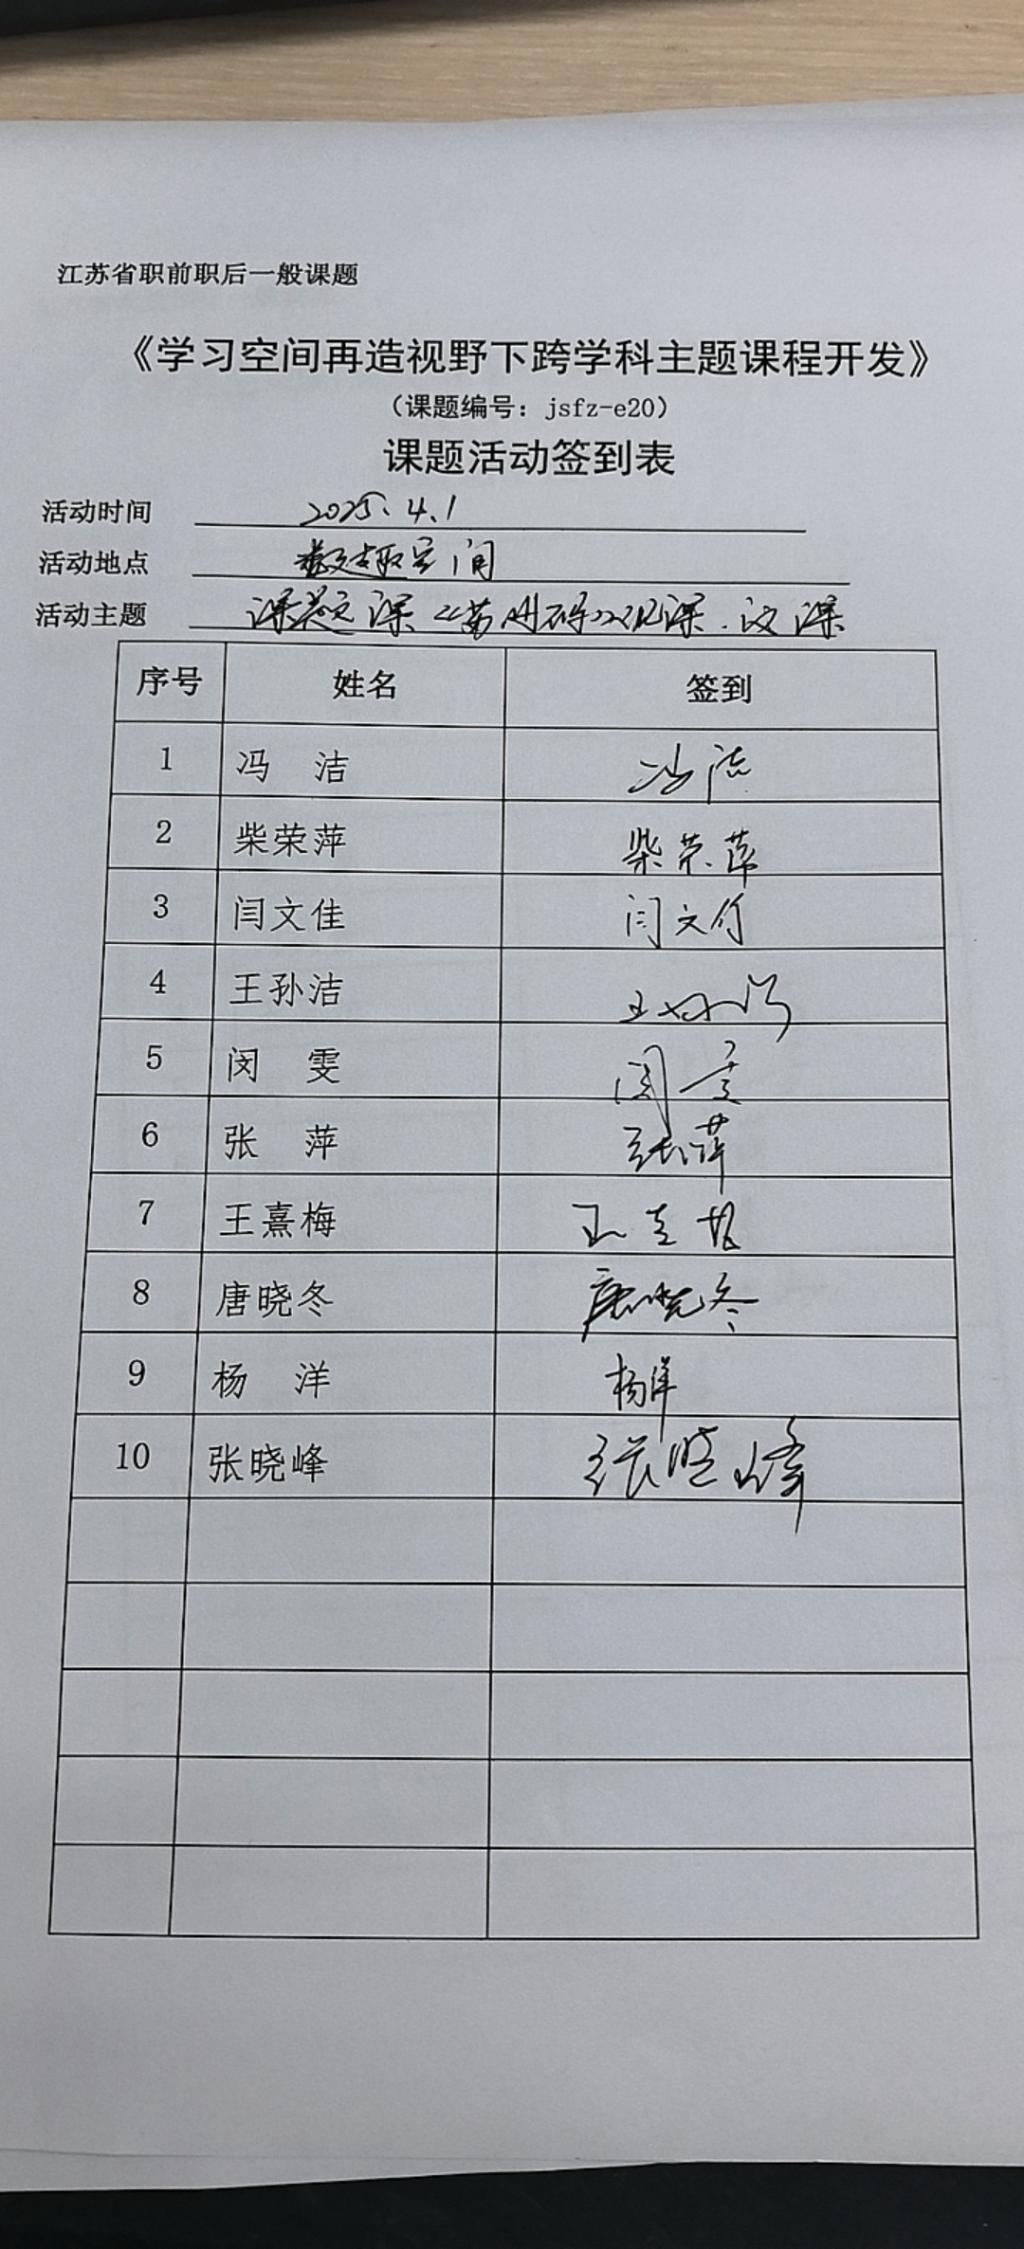 江苏省职前职后一般课题
《学习空间再造视野下跨学科主题课程开发》
（课题编号：jsfz-e20）
课题活动签到表
活动时间 2025.4.1
活动地点 数趣空间
活动主题 课题课《苏州码》观课.议课
序号 姓名 签到
1 冯 洁 冯洁
2 柴荣萍 柴荣萍
3 闫文佳 闫文佳
4 王孙洁 王孙洁
5 闵 雯 闵雯
6 张 萍 张萍
7 王熹梅 王熹梅
8 唐晓冬 唐晓冬
9 杨 洋 杨洋
10 张晓峰 张晓峰